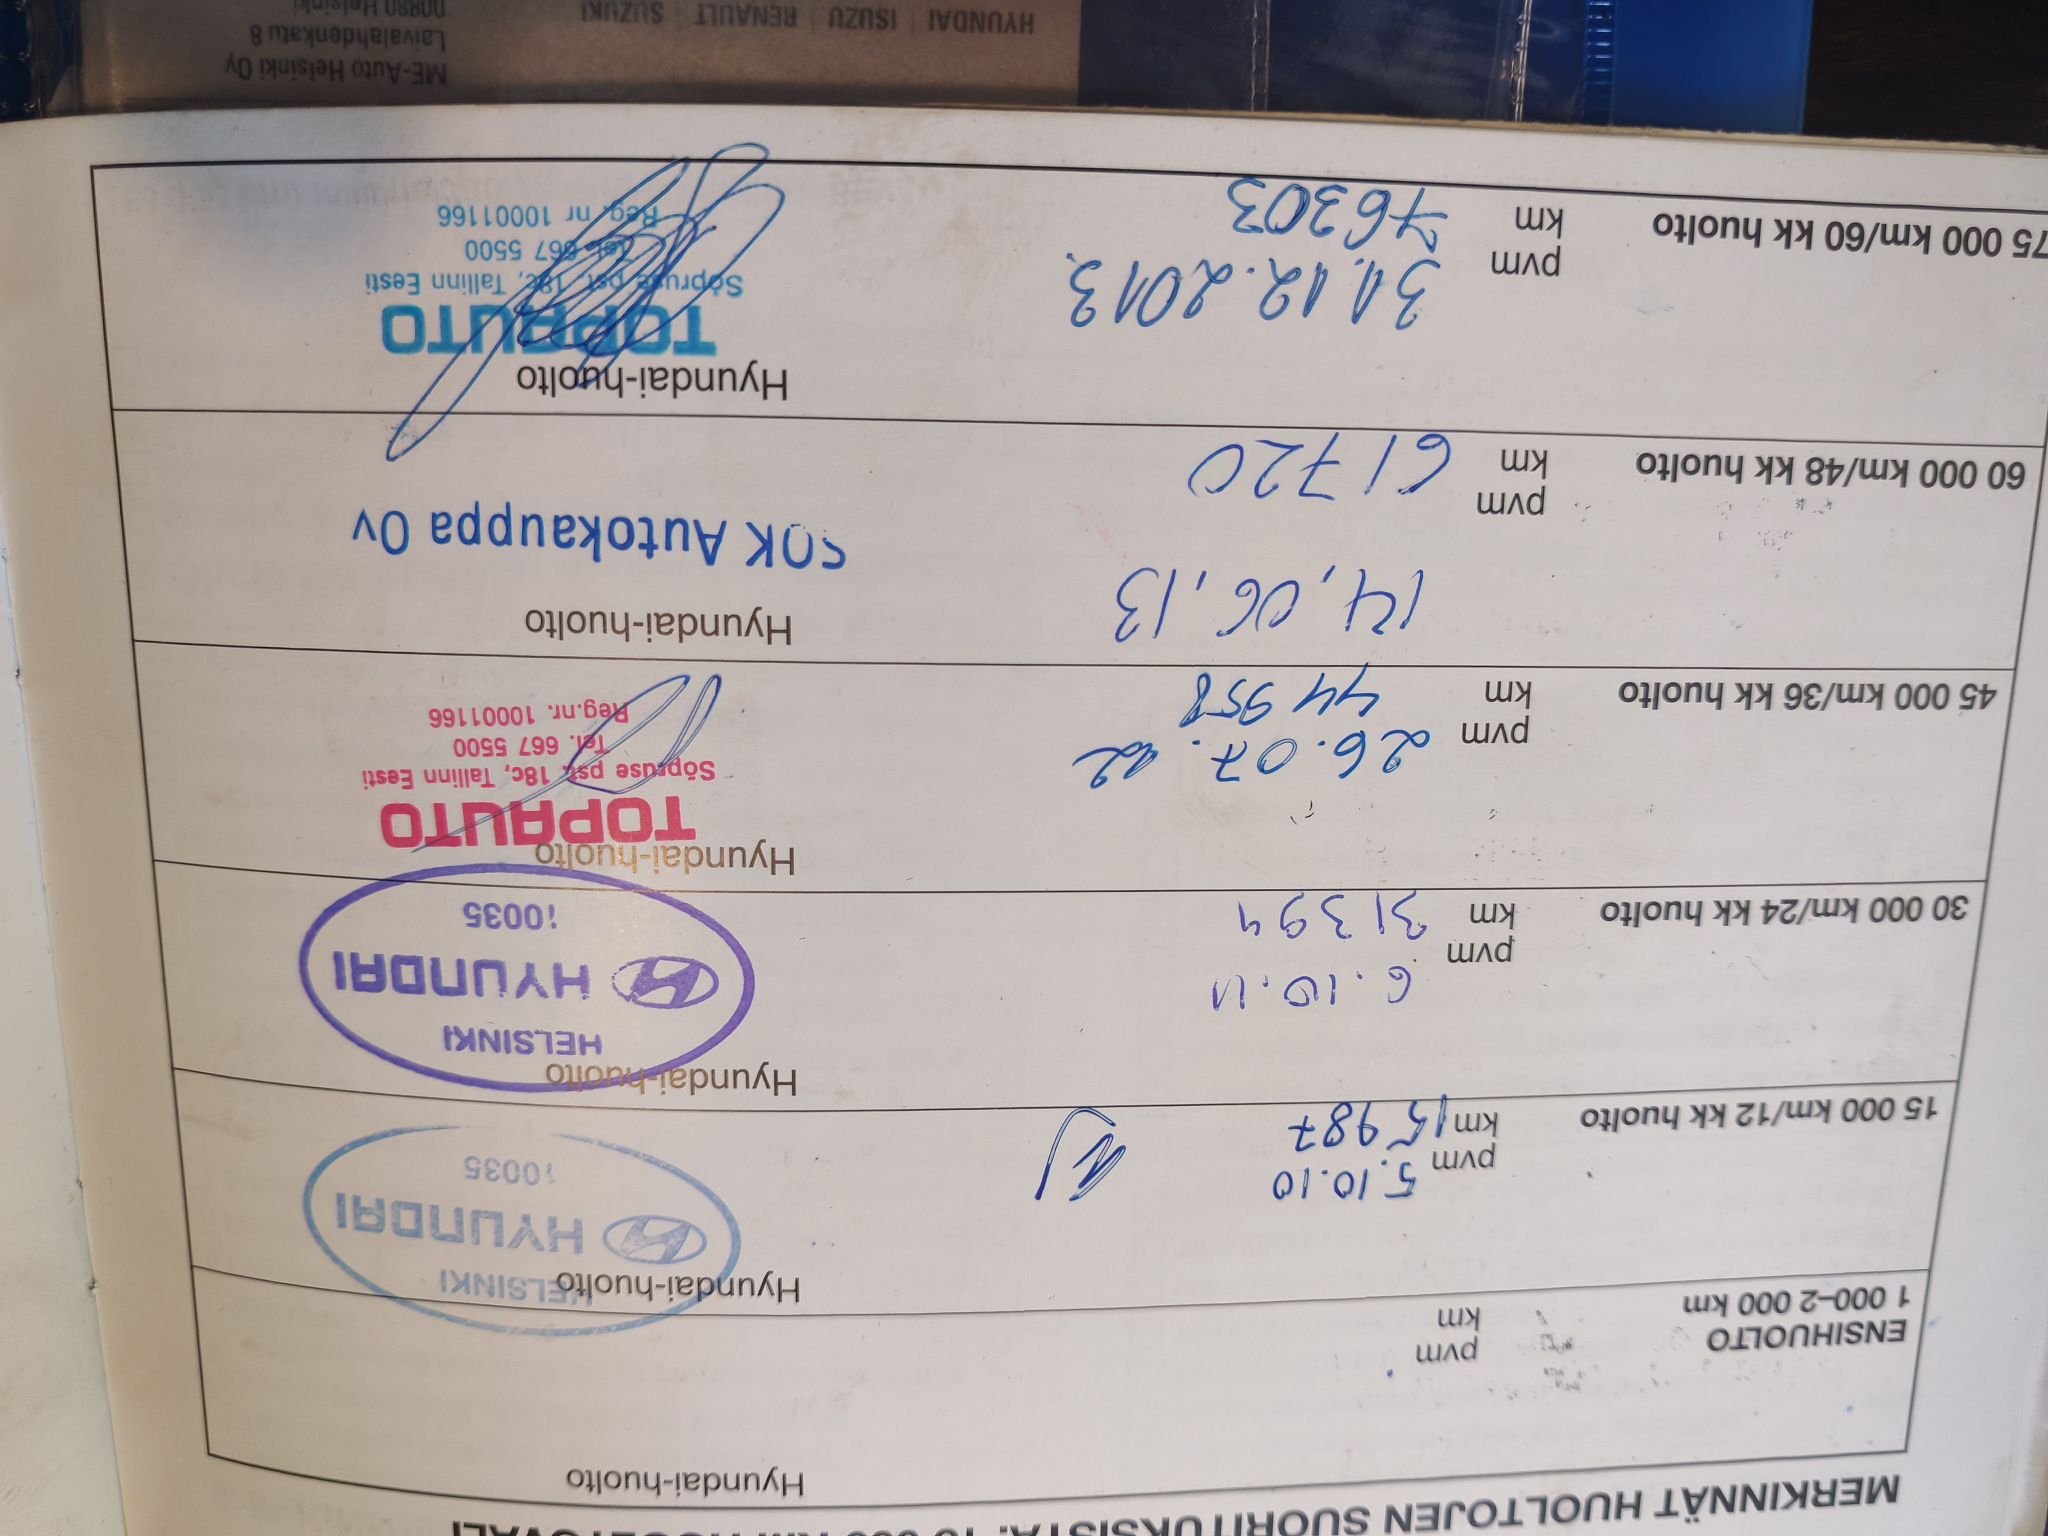 MERKINNÄT HUOLTOJEN SUORITUKSISTA:
Hyundai-huolto
ENSIHUOLTO
1 000–2 000 km
pvm
km
Hyundai-huolto
HELSINKI
HYUNDAI
10035
15 000 km/12 kk huolto
pvm 5.10.10
km 15987
Hyundai-huolto
HELSINKI
HYUNDAI
10035
30 000 km/24 kk huolto
6.10.11
pvm
km 31394
Hyundai-huolto
TOPAUTO
Sõpruse pst. 18c, Tallinn Eesti
Tel. 667 5500
Reg.nr. 10001166
45 000 km/36 kk huolto
pvm 26.07.12
km 44958
Hyundai-huolto
SOK Autokauppa Oy
60 000 km/48 kk huolto
14,06,13
pvm
km 61720
Hyundai-huolto
TOPAUTO
Sõpruse pst. 18c, Tallinn Eesti
Tel. 667 5500
Reg. nr 10001166
75 000 km/60 kk huolto
31.12.2013
pvm
km 76303
ME-Auto Helsinki Oy
Laivalahdenkatu 8
00880 Helsinki
HYUNDAI | ISUZU | RENAULT | SUZUKI